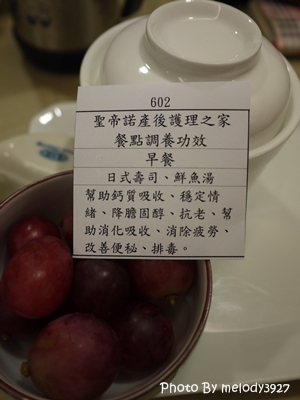 602
聖帝諾產後護理之家
餐點調養功效
早餐
日式壽司、鮮魚湯
幫助鈣質吸收、穩定情
緒、降膽固醇、抗老、幫
助消化吸收、消除疲勞、
改善便秘、排毒。
Photo By melody3927